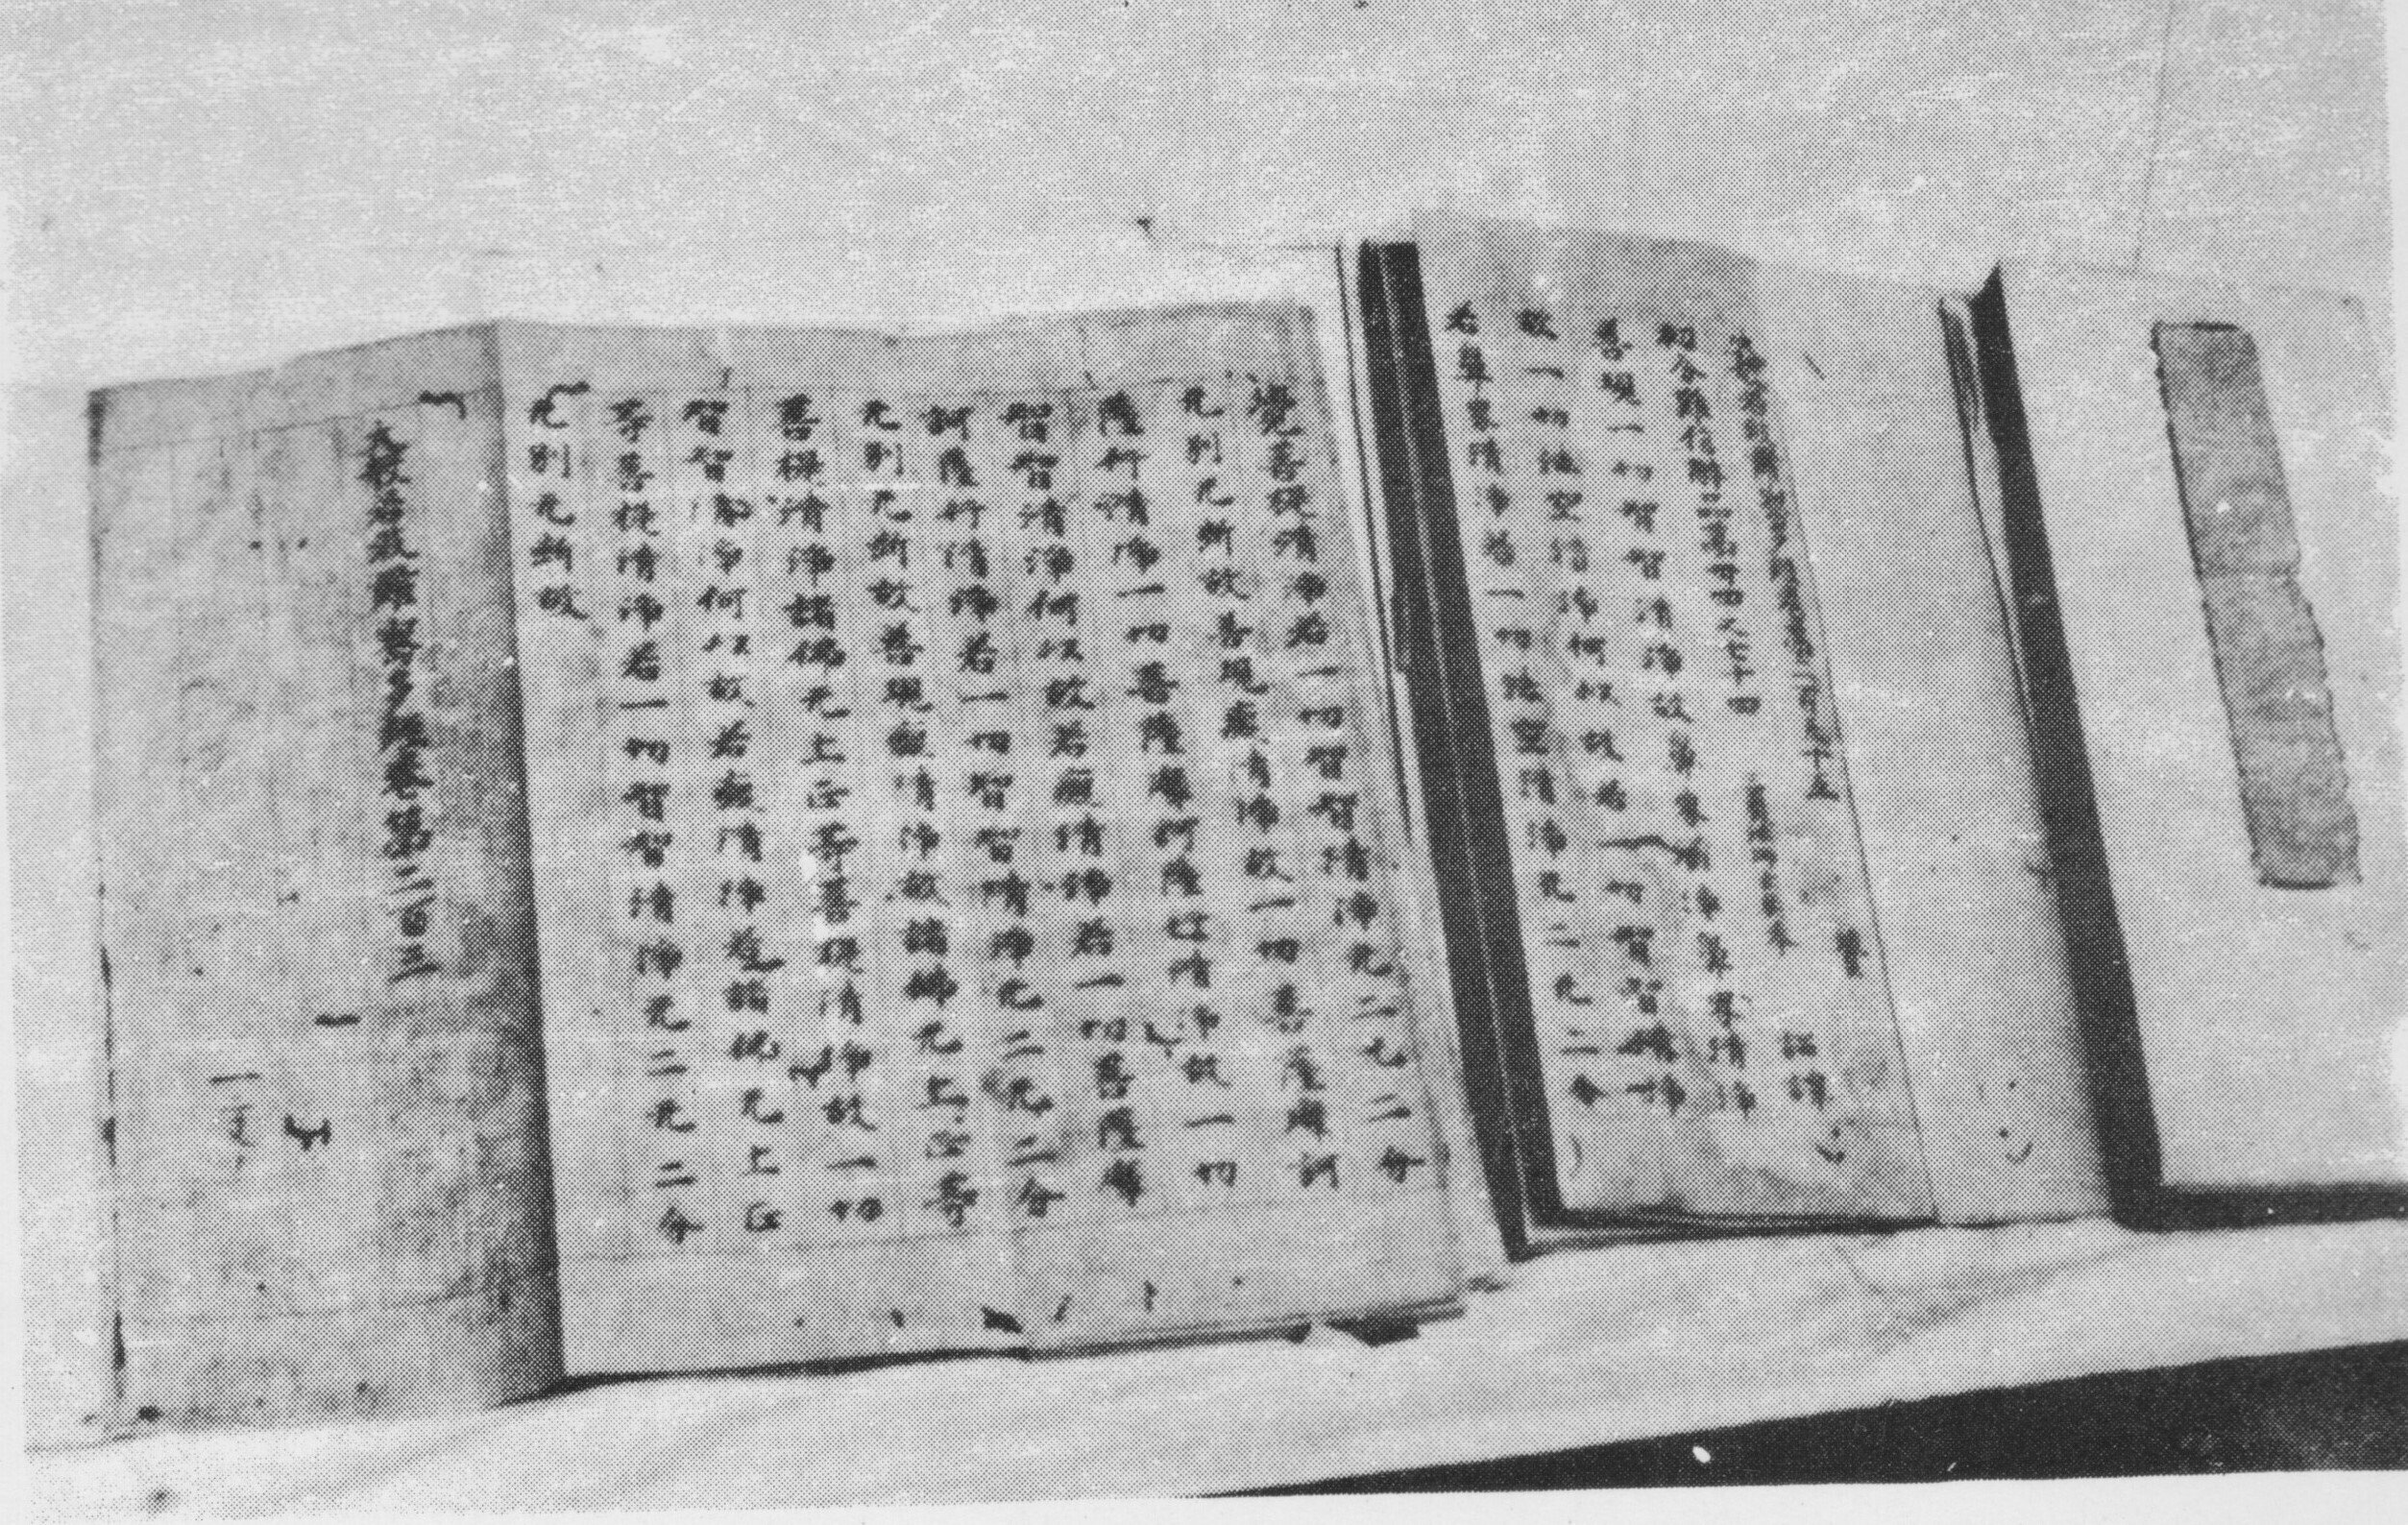 初分難信解品第三十四之九十四 三藏法師玄奘奉 詔譯
善現一切智智清淨故鼻界清淨鼻界清淨
故一切法空清淨何以故若一切智智清淨
若鼻界清淨若一切法空清淨无二无二分
覺菩提清淨若一切智智清淨无二无二分
无別无断故善現清淨故一切菩薩摩訶
薩行清淨一切菩薩摩訶薩行清淨故一切
智智清淨何以故若清淨若一切菩薩摩
訶薩行清淨若一切智智清淨无二无二分
无別无断故善現清淨故諸佛无上正等
菩提清淨諸佛无上正等菩提清淨故一切
智智清淨何以故若清淨若諸佛无上正
等菩提清淨若一切智智清淨无二无二分
无別无断故
大般若波羅蜜多經卷第二百